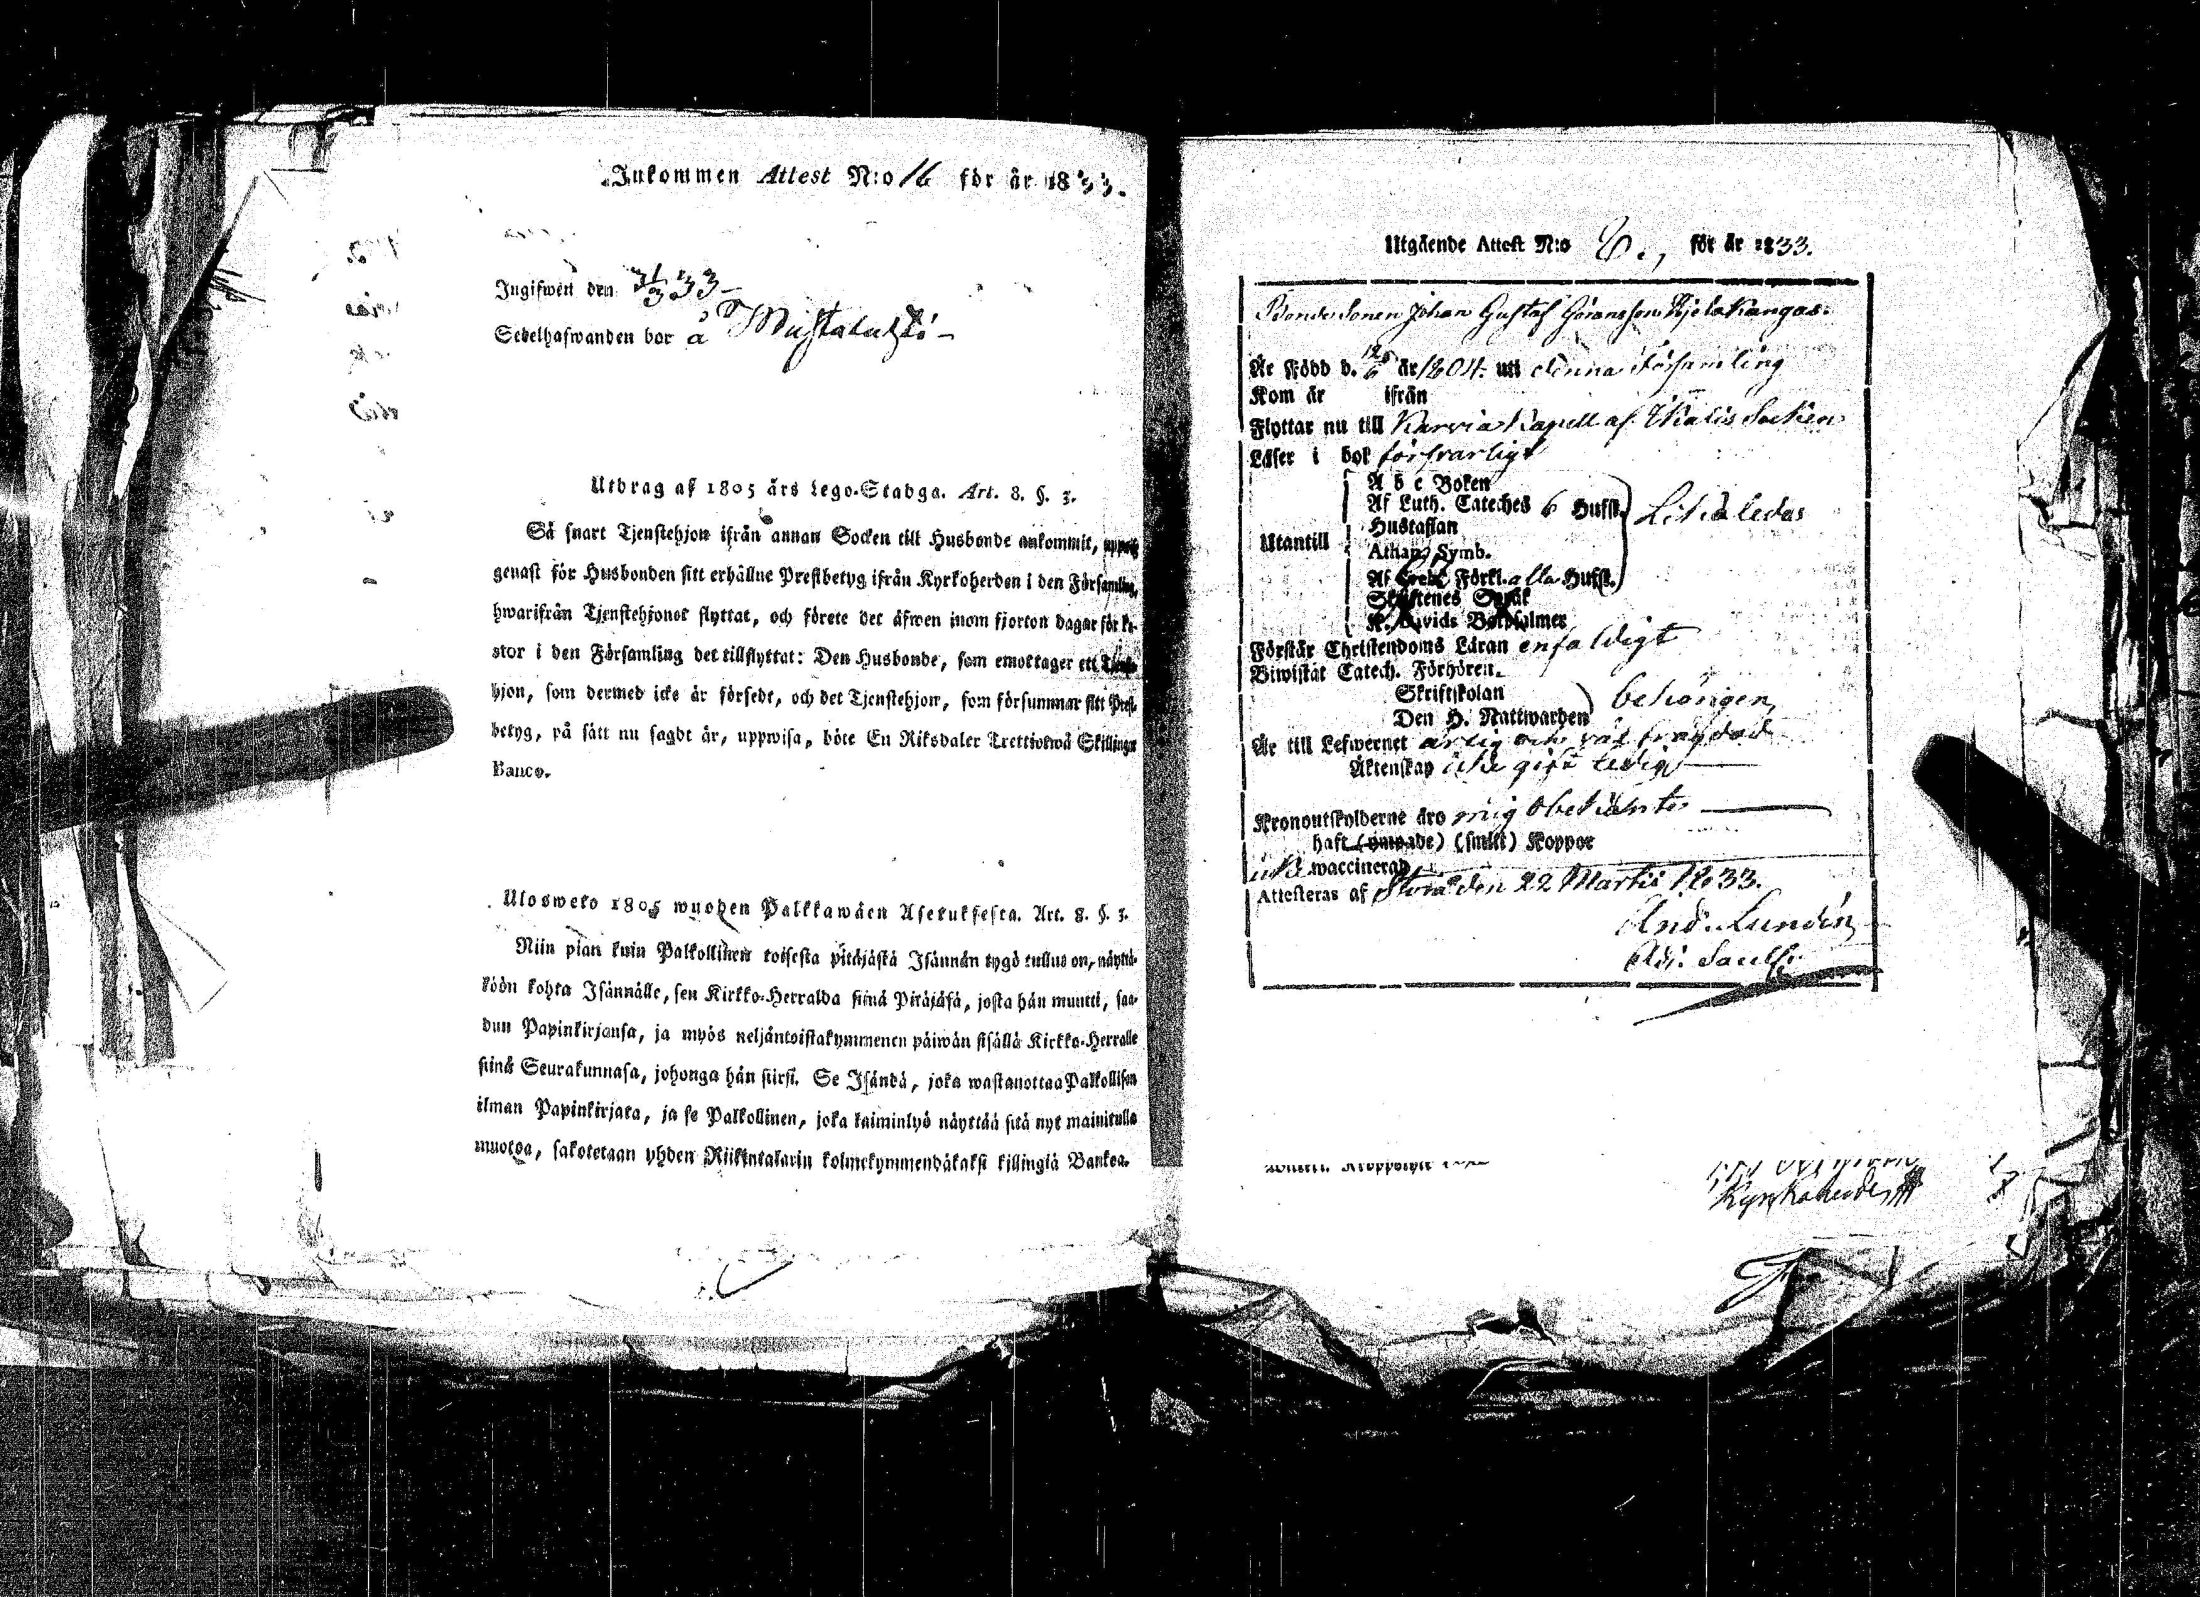 Inkommen Attest N:o 16 för år 1833.
Ingifwen den 31/3 33
Sedelhafwanden bor å
Utdrag af 1805 års Lego-Stadga. Art. 8. §. 3.
Så snart Tjenstehjon ifrån annan Socken till Husbonde ankommit,
genast för Husbonden sitt erhållne Prestbetyg ifrån Kyrkoherden i den Församling,
hwarifrån Tjenstehjonet flyttat, och förete det äfwen inom fjorton dagar för Pa-
stor i den Församling det tillflyttat: Den Husbonde, som emottager ett Tjenste-
hjon, som dermed icke är försedt, och det Tjenstehjon, som försummar sitt Prest-
betyg, på sätt nu sagdt är, uppwisa, böte En Riksdaler Trettiotwå Skillingar
Banco.
Ulosweto 1805 wuoden Palkkawäen Asetuksesta. Art. 8. §. 3.
Niin pian kuin Palkollinen toisesta pitäjästä Isännän tygö tullus on, näyttä-
köön kohta Isännälle, sen Kirkko-Herralda siinä Pitäjäsä, josta hän muutti, saa-
dun Papinkirjansa, ja myös neljäntoistakymmenen päiwän sisällä Kirkko-Herralle
siinä Seurakunnasa, johonga hän siirsi. Se Isändä, joka wastanottaa Palkollisen
ilman Papinkirjata, ja se Palkollinen, joka laiminlyö näyttää sitä nyt mainitulla
muotoa, sakotetaan yhden Riikintalarin kolmekymmendäkaksi killingiä Bankoa.
Utgående Attest N:o 8., för år 1833.
Bonde Sonen Johan Gustaf Göransson Hjelakangas.
Är Född d. 12/6 år 1804. uti denna Församling
Kom år ifrån
Flyttar nu till Karvia Kapell af Ikalis Socken
Läser i bok försvarligt
Utantill
A b c Boken
Af Luth. Cateches 6 Hufst.
Hustaflan
Athan. Symb.
Af Förkl. alla Hufst.
Likaledes
Skriftenes Språk
K. Davids Botpsalmer
Förstår Christendoms Läran enfaldigt
Biwiståt Catech. Förhören.
Skriftskolan
Den H. Nattwarden
behörigen
Är till Lefwernet ärlig och väl frägdad
Äktenskap icke gift ledig
Kronoutskylderne äro mig obekante
haft (ympade) (smitt) Koppor
icke waccinerad
Attesteras af Storå den 22 Martii 1833.
And. Lundén
Adj. Sacell.
Kyrkoherde